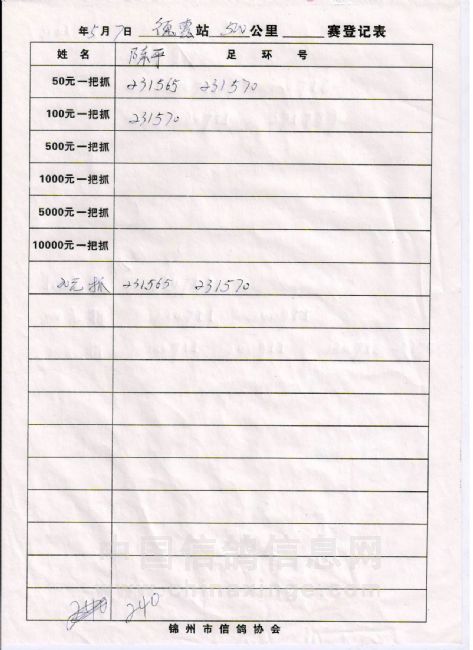 年5月7日 德惠站 500公里 赛登记表
姓名 陈平 足环号
50元一把抓 231565 231570
100元一把抓 231570
500元一把抓
1000元一把抓
5000元一把抓
10000元一把抓
20元抓 231565 231570
中国信鸽信息网
www.chinaxinge.com
240
锦州市信鸽协会